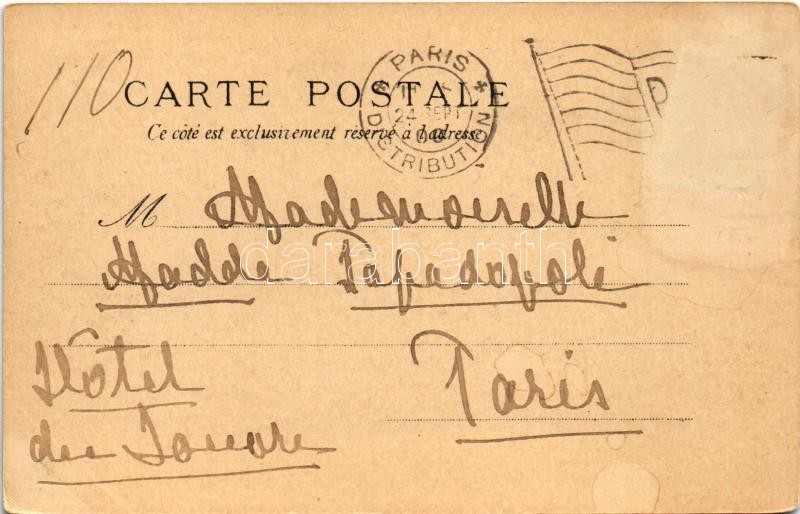 110
CARTE POSTALE
Ce côté est exclusivement réservé à l'adresse
PARIS
24 SEPT
DISTRIBUTION
M Mademoiselle
Madda Papadopoli
darabanth
Hôtel
du Louvre
Paris